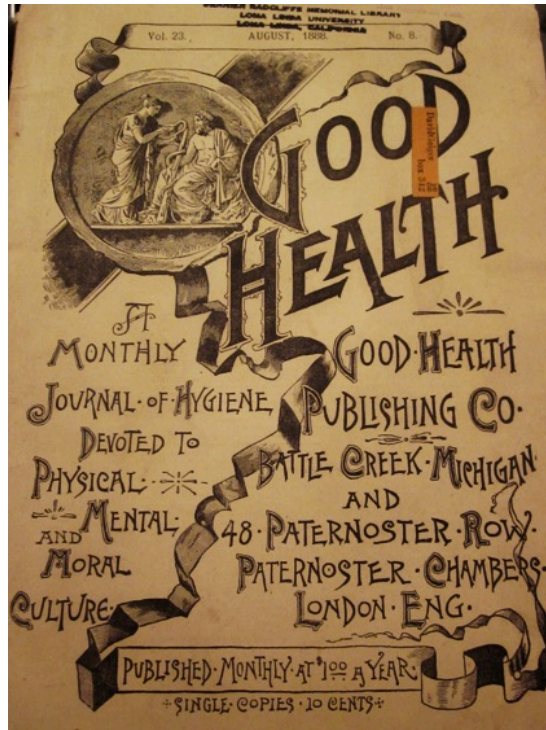 CRANIER RADCLIFFE MEMORIAL LIBRARY
LOMA LINDA UNIVERSITY
LOMA LINDA, CALIFORNIA
Vol. 23. AUGUST, 1888. No. 8.
GOOD
HEALTH
A
MONTHLY
JOURNAL·OF·HYGIENE
DEVOTED TO
PHYSICAL
MENTAL
AND
MORAL
CULTURE·
GOOD·HEALTH
PUBLISHING CO·
BATTLE CREEK·MICHIGAN
AND
48·PATERNOSTER·ROW·
PATERNOSTER·CHAMBERS·
LONDON·ENG·
PUBLISHED·MONTHLY·AT $1.00 A YEAR·
SINGLE·COPIES·10 CENTS
box 342